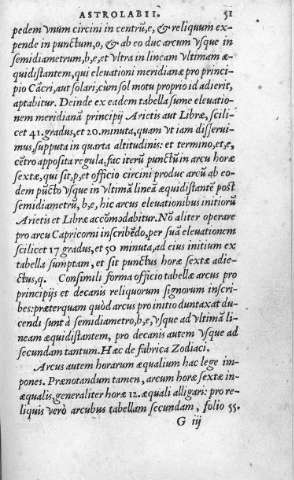 ASTROLABII. 51
pedem vnum circini in centrũ,e, & reliquum ex-
pende in punctum,o, & ab eo duc arcum vsque in
semidiametrum,b,e,et vltra in lineam vltimam æ-
quidistantem, qui eleuationi meridianæ pro princi-
pio Cãcri, aut solari,cùm sol motu proprio id adierit,
aptabitur. Deinde ex eadem tabella sume eleuatio-
nem meridianã principij Arietis aut Libræ, scili-
cet 41.gradus,et 20.minuta,quam vt iam disserui-
mus,supputa in quarta altitudinis: et termino,et,e,
cẽtro apposita regula,fac iterũ punctũ in arcu horæ
sextæ,qui sit,p,et officio circini produc arcũ ab eo-
dem pũcto vsque in vltimã lineã æquidistantẽ post
semidiametrũ,b,e,hic arcus eleuationibus initiorũ
Arietis et Libræ accõmodabitur. Nõ aliter operare
pro arcu Capricorni inscribẽdo,per suã eleuationem
scilicet 17 gradus,et 50 minuta,ad eius initium ex
tabella sumptam, et sit punctus horæ sextæ adie-
ctus,q. Consimili forma officio tabellæ arcus pro
principijs et decanis reliquorum signorum inscri-
bes:præterquam quòd arcus pro initio duntaxat du-
cendi sunt à semidiametro,b,e,vsque ad vltimã li-
neam æquidistantem, pro decanis autem vsque ad
secundam tantum. Hæc de fabrica Zodiaci.
Arcus autem horarum æqualium hac lege im-
pones. Prænotandum tamen, arcum horæ sextæ in-
æqualis,generaliter horæ 12.æquali alligari: pro re-
liquis verò arcubus tabellam secundam, folio 55.
G iij